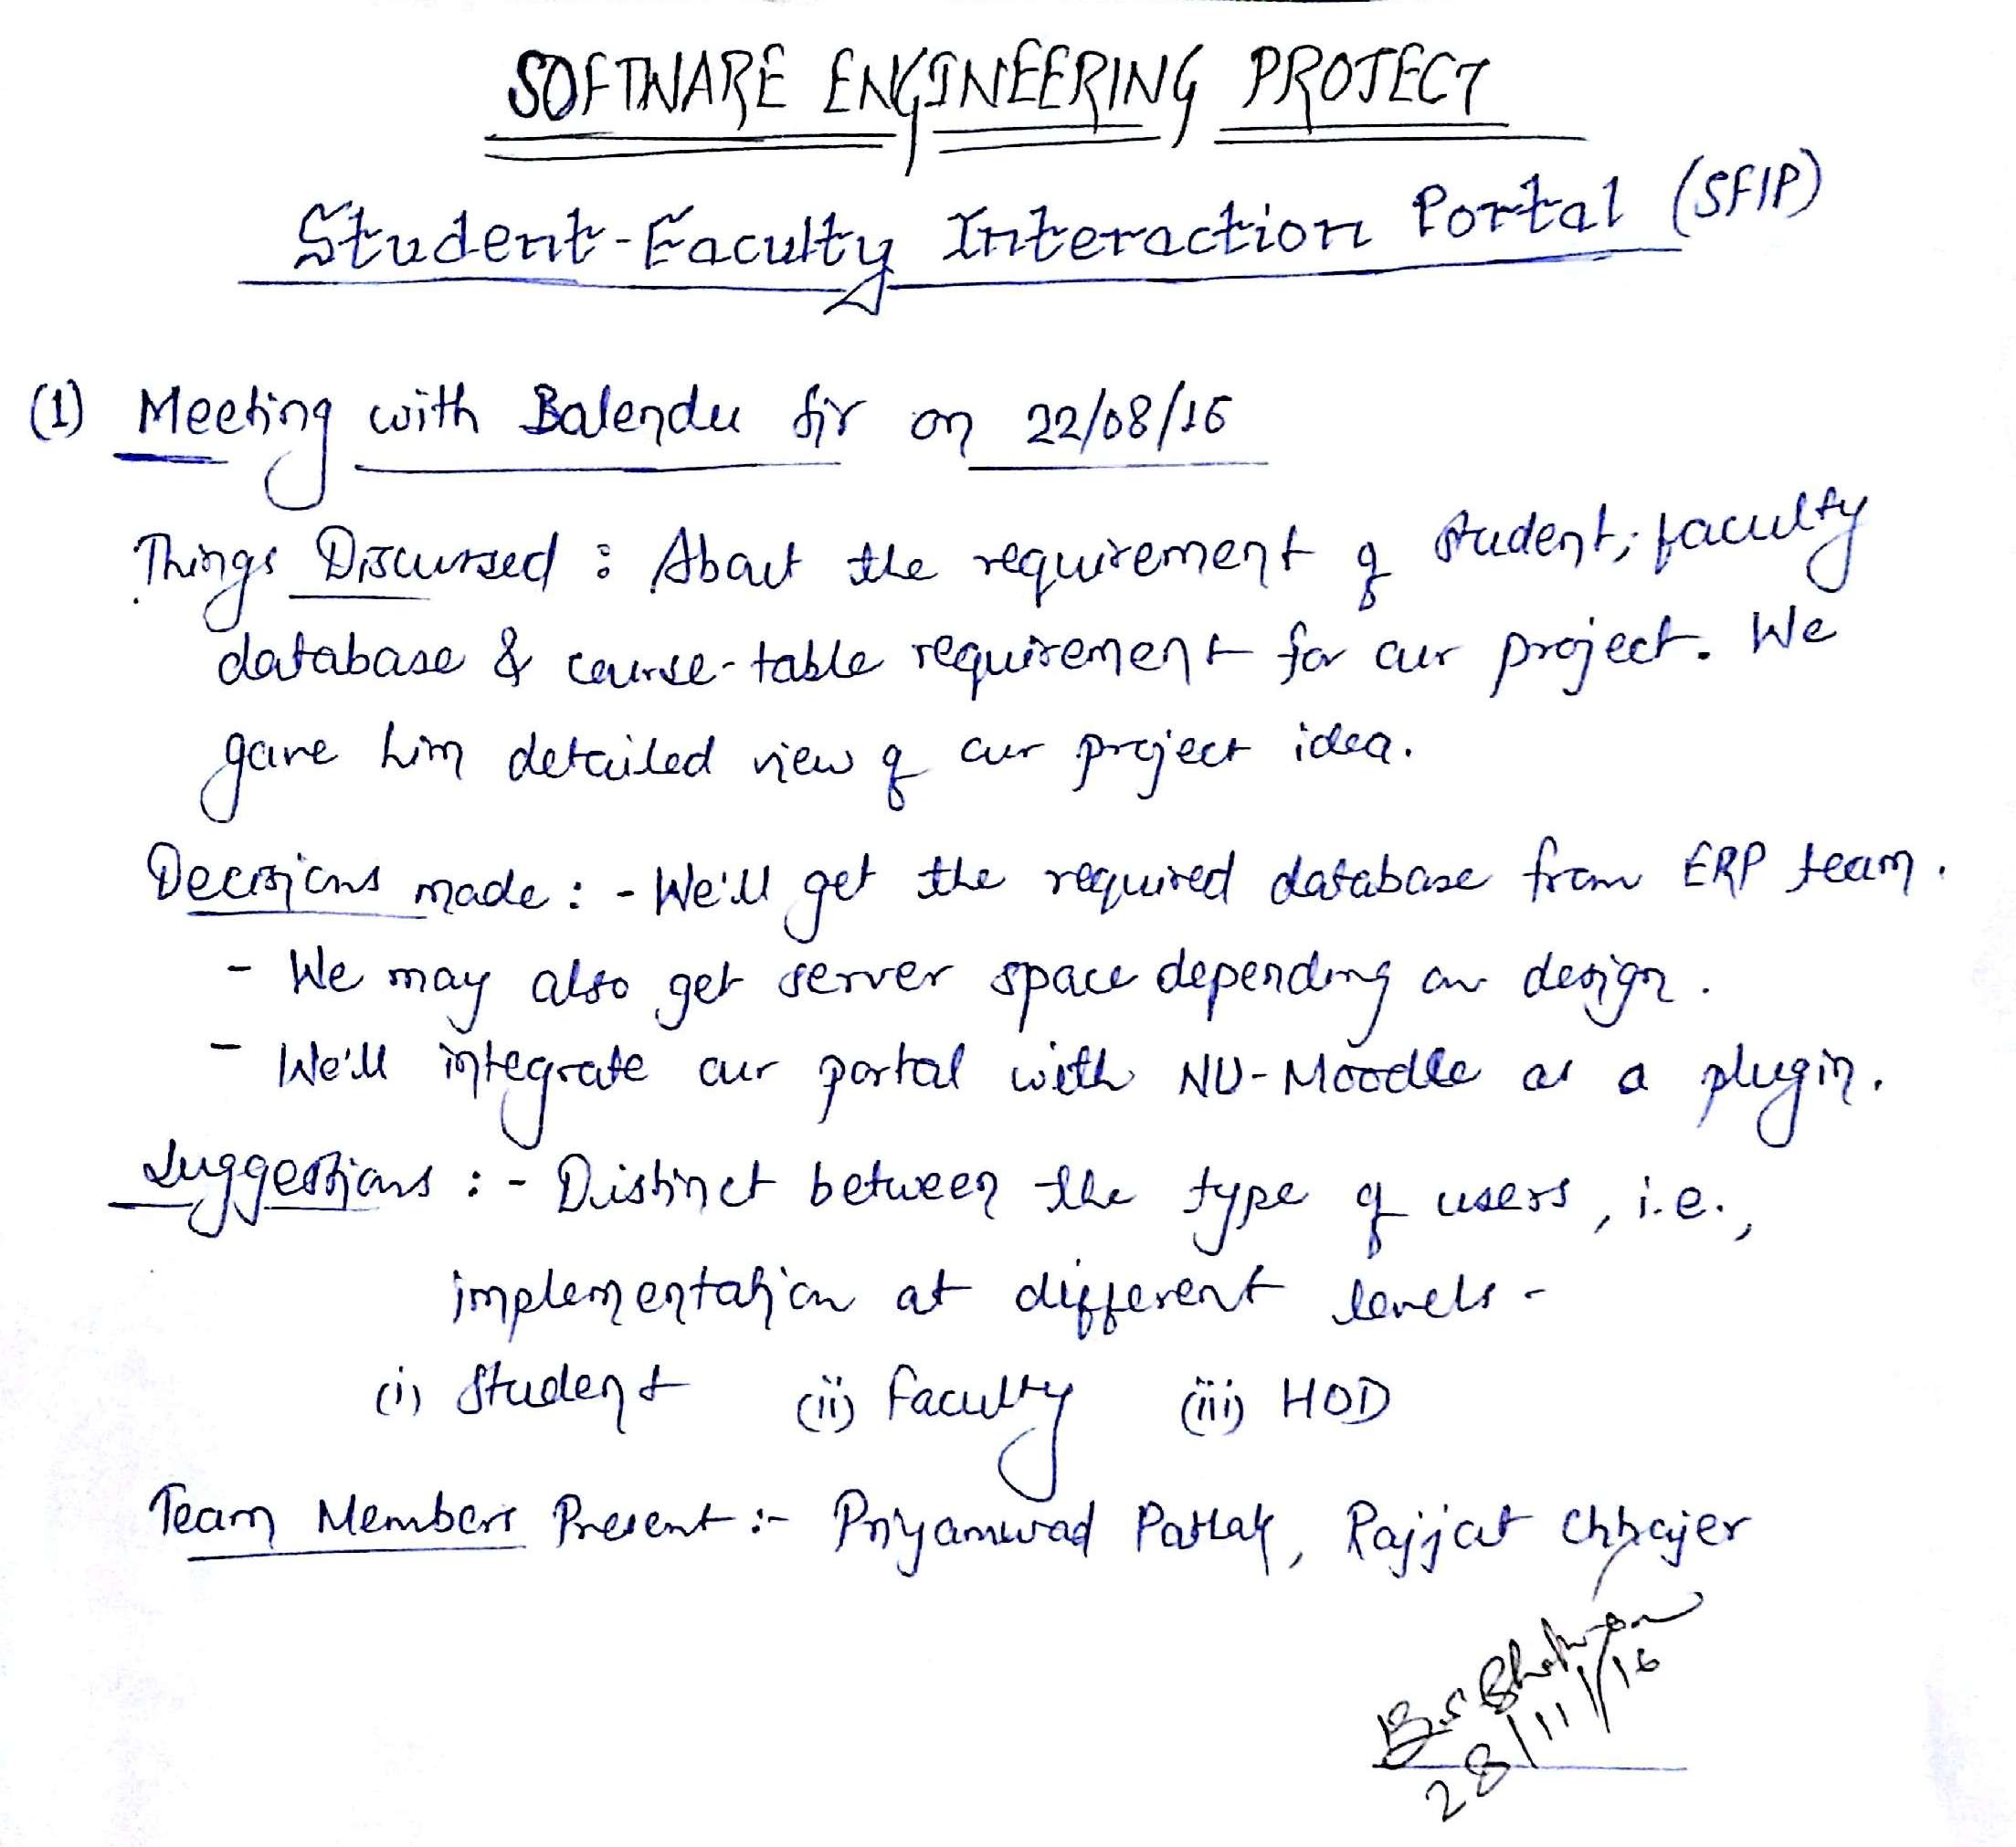 SOFTWARE ENGINEERING PROJECT
Student-Faculty Interaction Portal (SFIP)
(1) Meeting with Balendu Sir on 22/08/16
Things Discussed : About the requirement of student, faculty
database & course-table requirement for our project. We
gave him detailed view of our project idea.
Decisions made : - We'll get the required database from ERP team.
- We may also get server space depending on design.
- We'll integrate our portal with NU-Moodle as a plugin.
Suggestions : - Distinct between the type of users, i.e.,
implementation at different levels -
(i) Student (ii) Faculty (iii) HOD
Team Members Present :- Priyamwad Pathak, Rajjat Chhajer
28/11/16